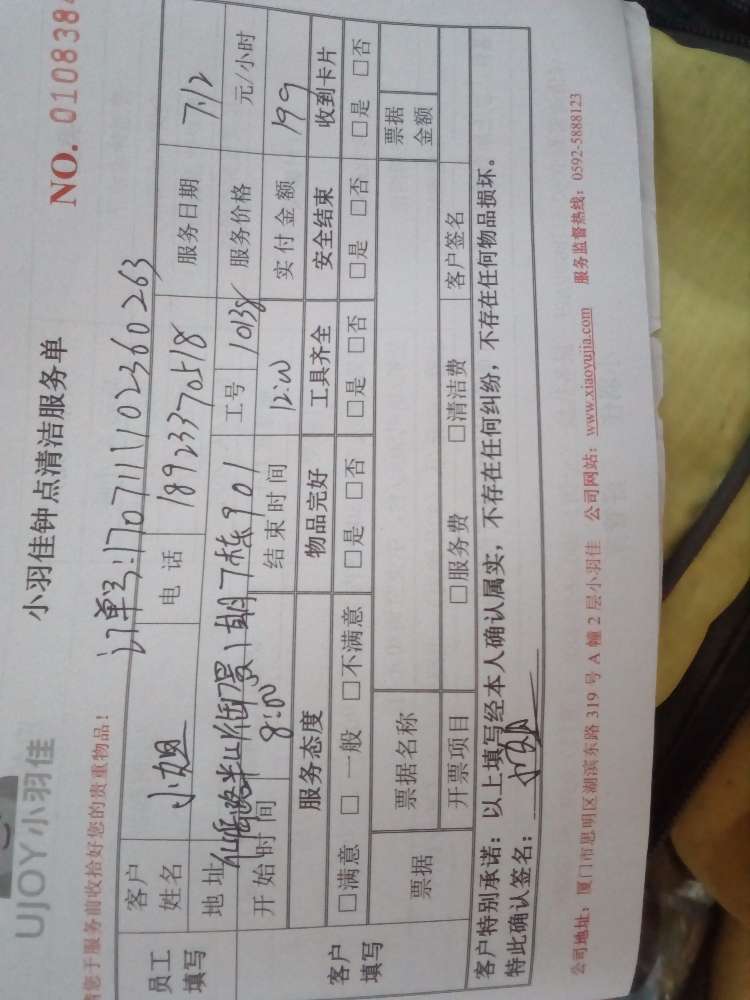 UJOY小羽佳
小羽佳钟点清洁服务单
NO. 0108384
请您于服务前收拾好您的贵重物品！
订单号:170711110236 0263
员工填写
客户姓名 小姐 电话 18923370518 服务日期 7.12
地址 半山御景1期7栋901 工号 10138 服务价格 元/小时
开始时间 8:00 结束时间 12:00 实付金额 199
客户填写
服务态度 物品完好 工具齐全 安全结束 收到卡片
□满意 □一般 □不满意 □是 □否 □是 □否 □是 □否 □是 □否
票据 票据名称 票据金额
开票项目 □服务费 □清洁费 客户签名
客户特别承诺：以上填写经本人确认属实，不存在任何纠纷，不存在任何物品损坏。
特此确认签名：
公司地址：厦门市思明区湖滨东路 319 号 A 幢 2 层小羽佳 公司网站：www.xiaoyujia.com 服务监督热线：0592-5888123